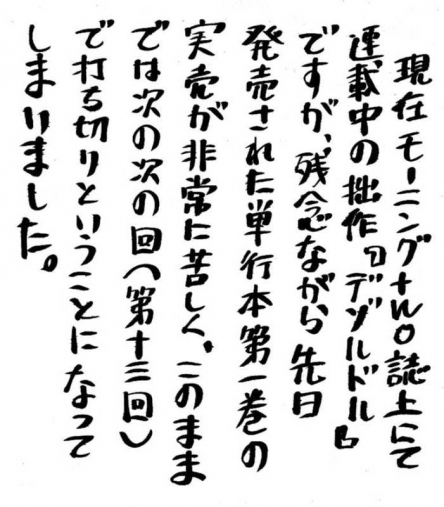 現在モーニング・ツー誌上にて
連載中の拙作『デゾルドル』
ですが、残念ながら先日
発売された単行本第一巻の
実売が非常に苦しく、このまま
では次の次の回(第十三回)
で打ち切りということになって
しまいました。